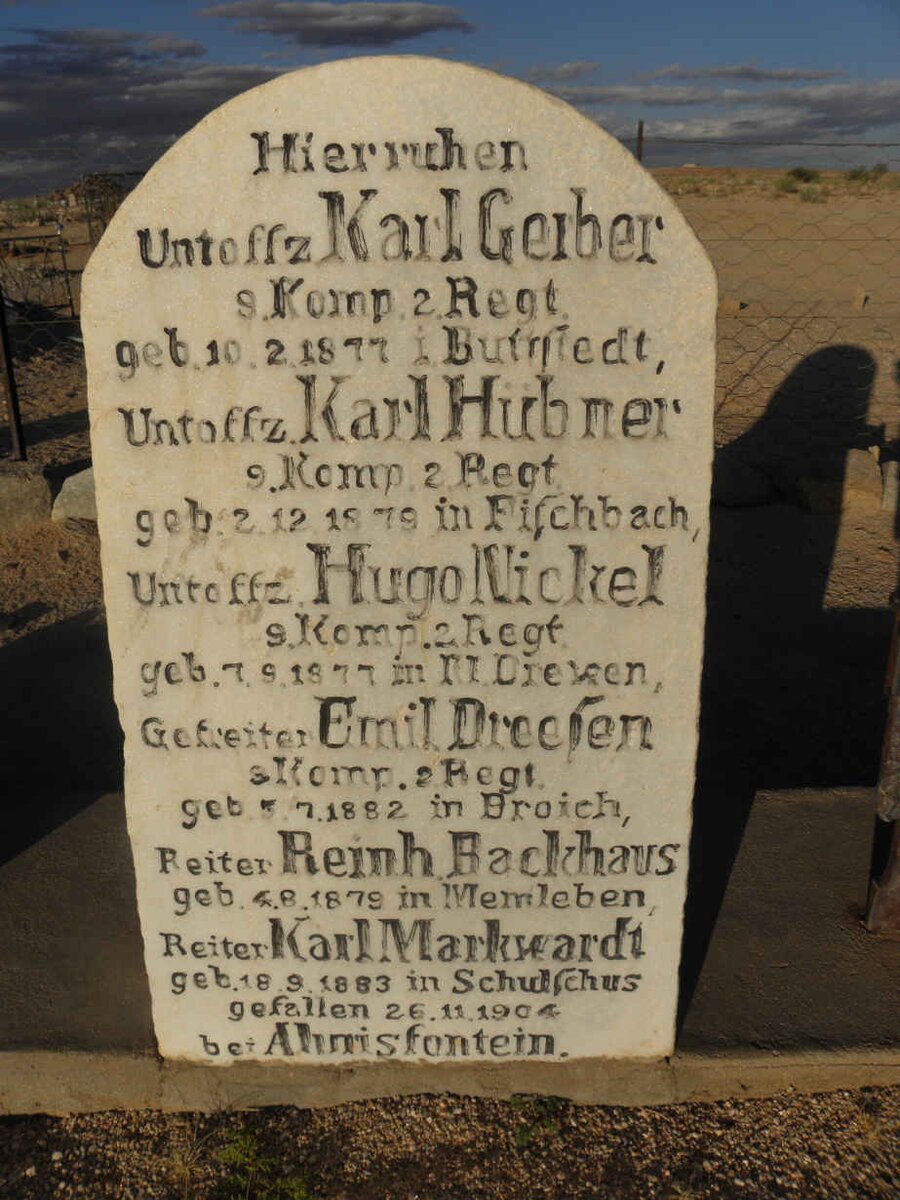 Hier ruhen
Untoffz Karl Gerber
9. Komp. 2. Regt.
geb. 10. 2. 1877 i. Buttstedt,
Untoffz. Karl Hübner
9. Komp. 2. Regt.
geb. 2. 12. 1879 in Fiſchbach,
Untoffz. Hugo Nickel
9. Komp. 2. Regt.
geb. 7. 9. 1877 in N. Drewen,
Gefreiter Emil Dreeſen
9. Komp. 2. Regt.
geb. 5. 7. 1882 in Broich,
Reiter Reinh. Backhaus
geb. 4. 8. 1879 in Memleben,
Reiter Karl Markwardt
geb. 18. 9. 1883 in
gefallen 26. 11. 1904
bei